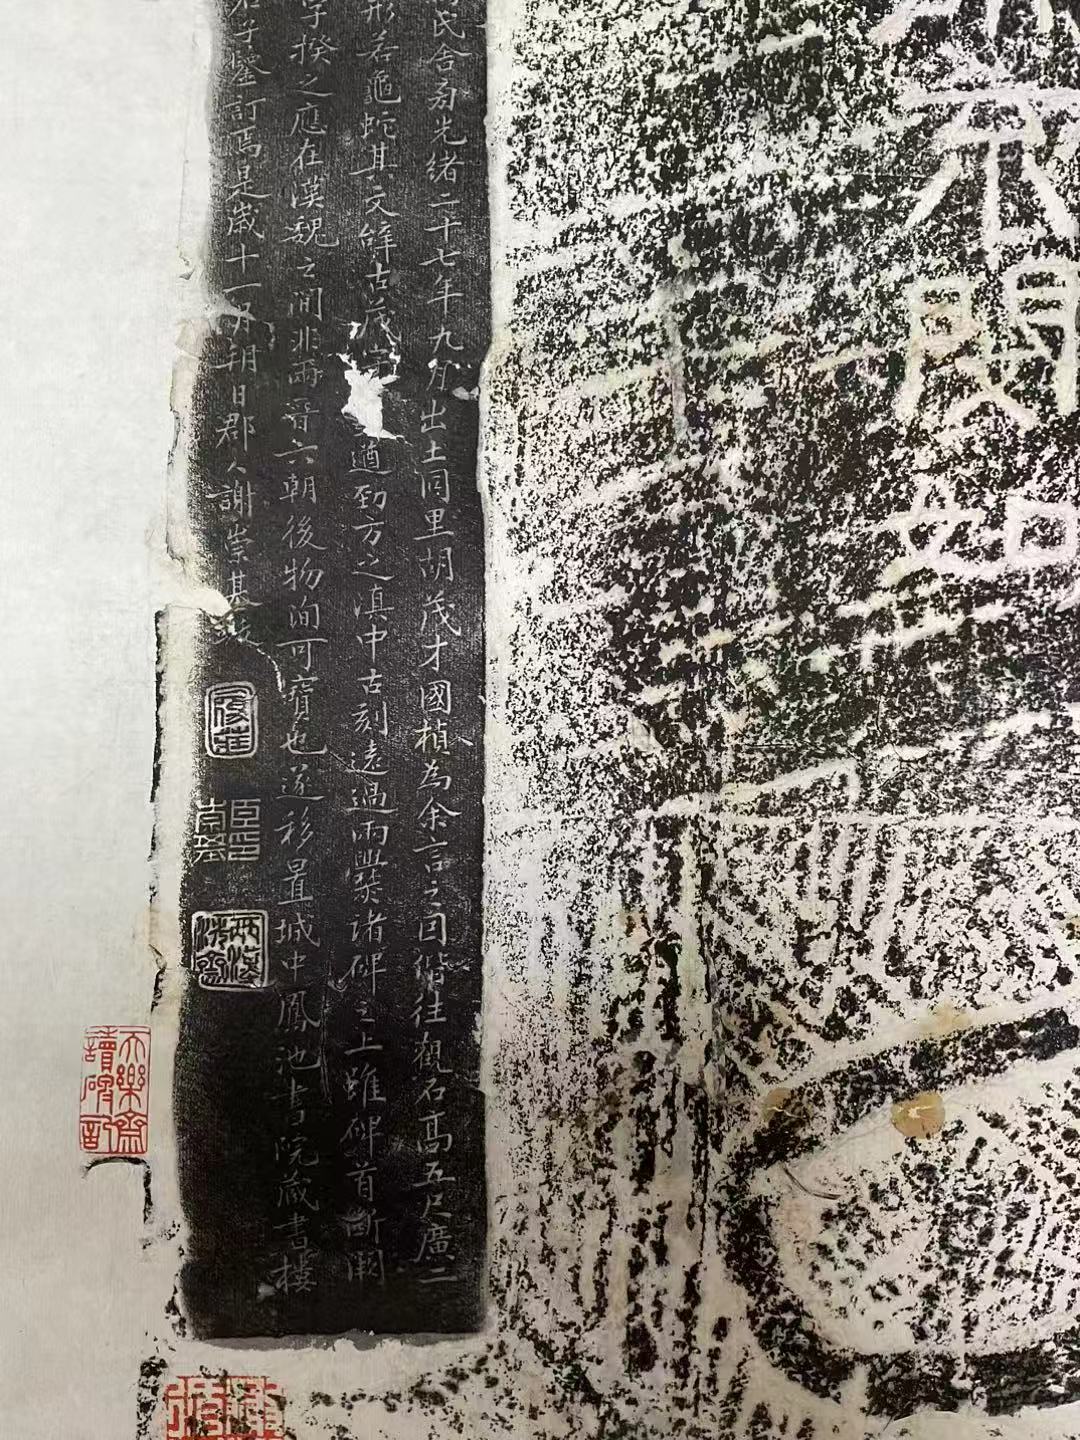 閔如
氏舍旁光緒二十七年九月出土同里胡茂才國楨為余言之因偕往觀石高五尺廣二
形若龜蛇其文辭古茂字遒勁方之滇中古刻遠過兩爨諸碑之上雖碑首斷闕
字揆之應在漢魏之間非兩晉六朝後物洵可寶也遂移置城中鳳池書院藏書樓
君子鑒訂焉是歲十一月朔日郡人謝崇基跋
履莊
臣印崇基
天樂齋讀碑記